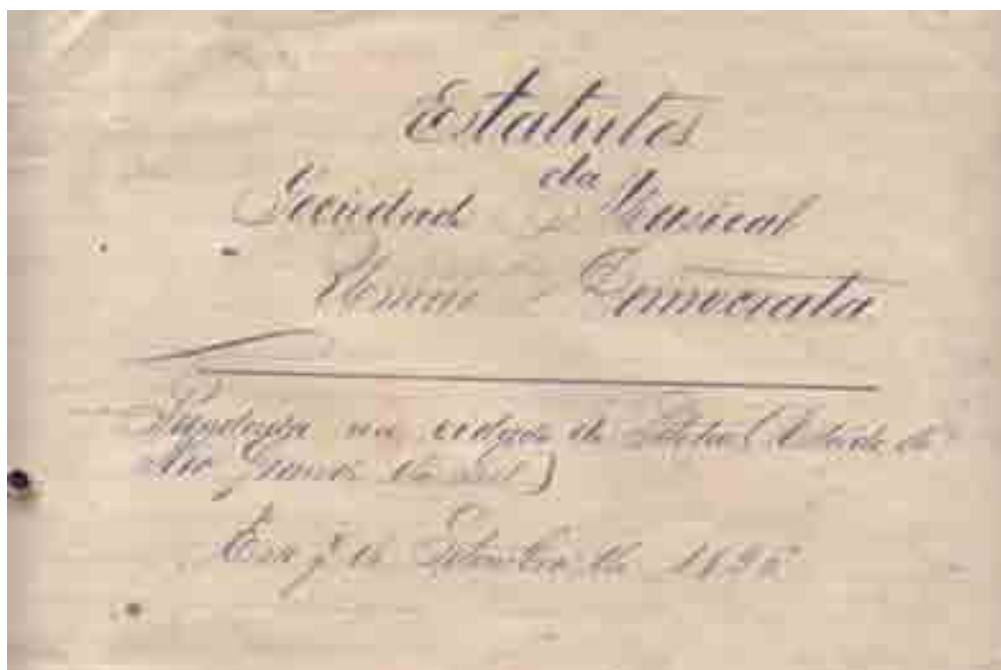 Estatutos
da
Sociedade Musical
União Democrata
na cidade de Pelotas (Estado do
Rio Grande do Sul)
Em 7 de Setembro de 1896